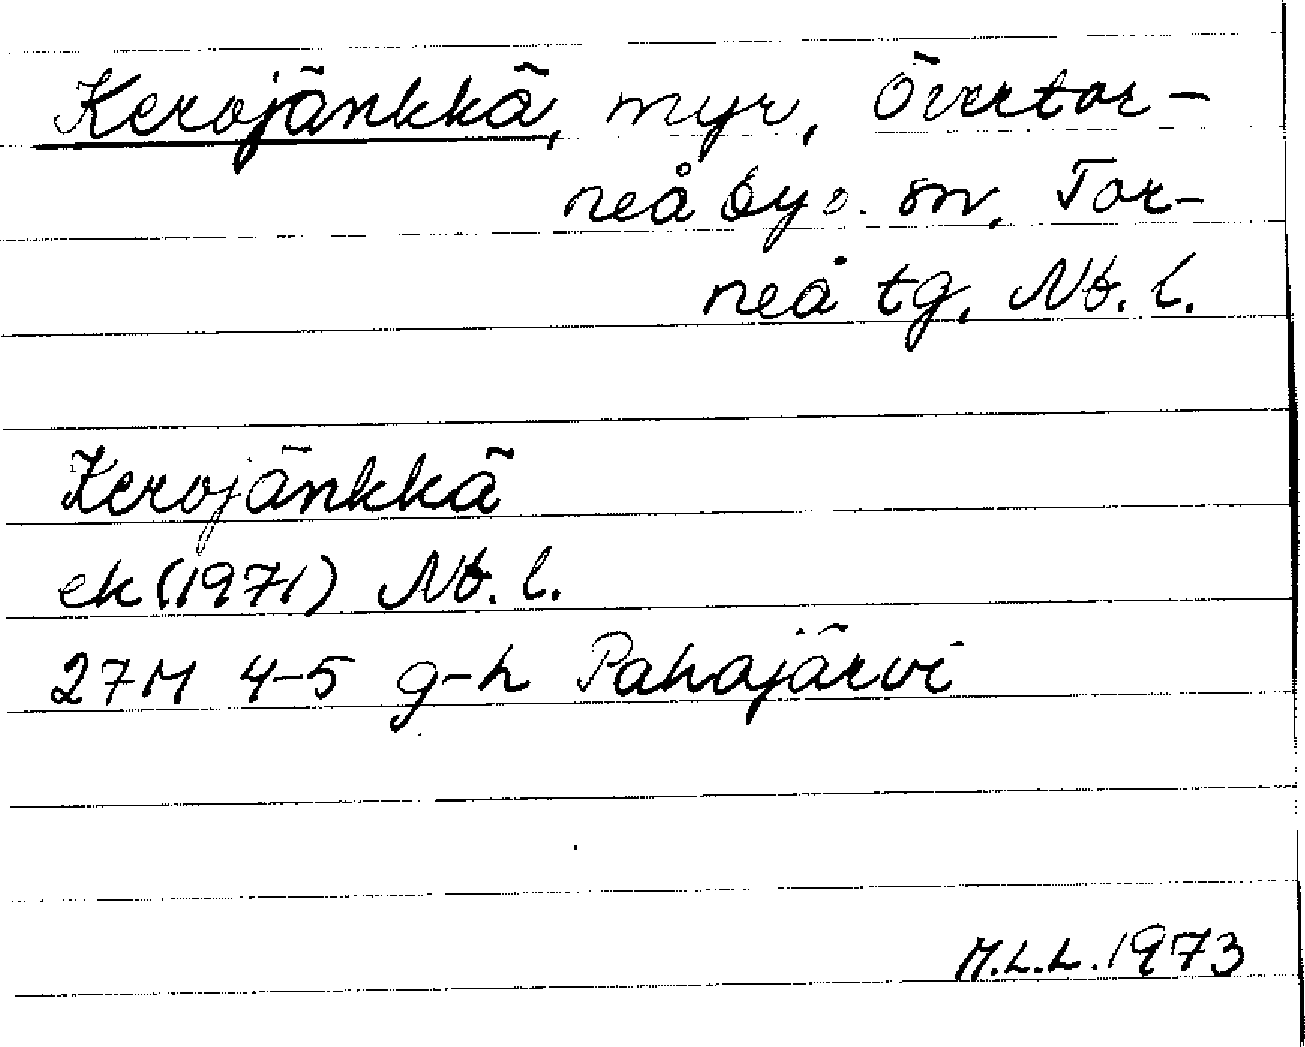 Kerojänkkä, myr, Övertor-
neå by o. sn, Tor-
neå tg, Nb. l.
Kerojänkkä
ek (1971) Nb. l.
27M 4-5 g-h Pahajärvi
M.L.L. 1973